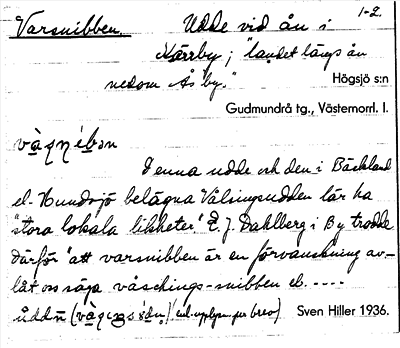 1-2.
Varsnibben. Udde vid ån i
Kärrby; "landet längs ån
nedom Ås by."
Högsjö s:n
Gudmundrå tg., Västernorrl. l.
Denna udde och den i Bäckland
el. Hundsjö belägna Välsingsudden lär ha
"stora lokala likheter". E. J. Dahlberg i By trodde
därför "att varsnibben är en förvanskning av-
låt oss säga våschings-snibben el. ....
uddn enl. upplysn. per brev)
Sven Hiller 1936.